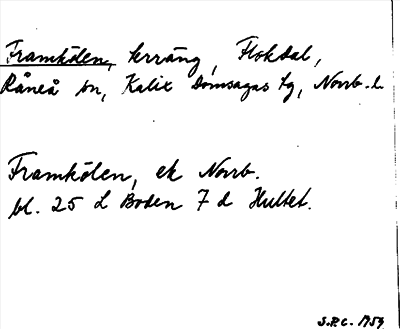 Framkölen, terräng, Flokdal,
Råneå sn, Kalix Domsagas tg, Norrb. l.
Framkölen, ek Norrb.
bl. 25 L Boden 7 d Hultet.
S.P.C. 1953